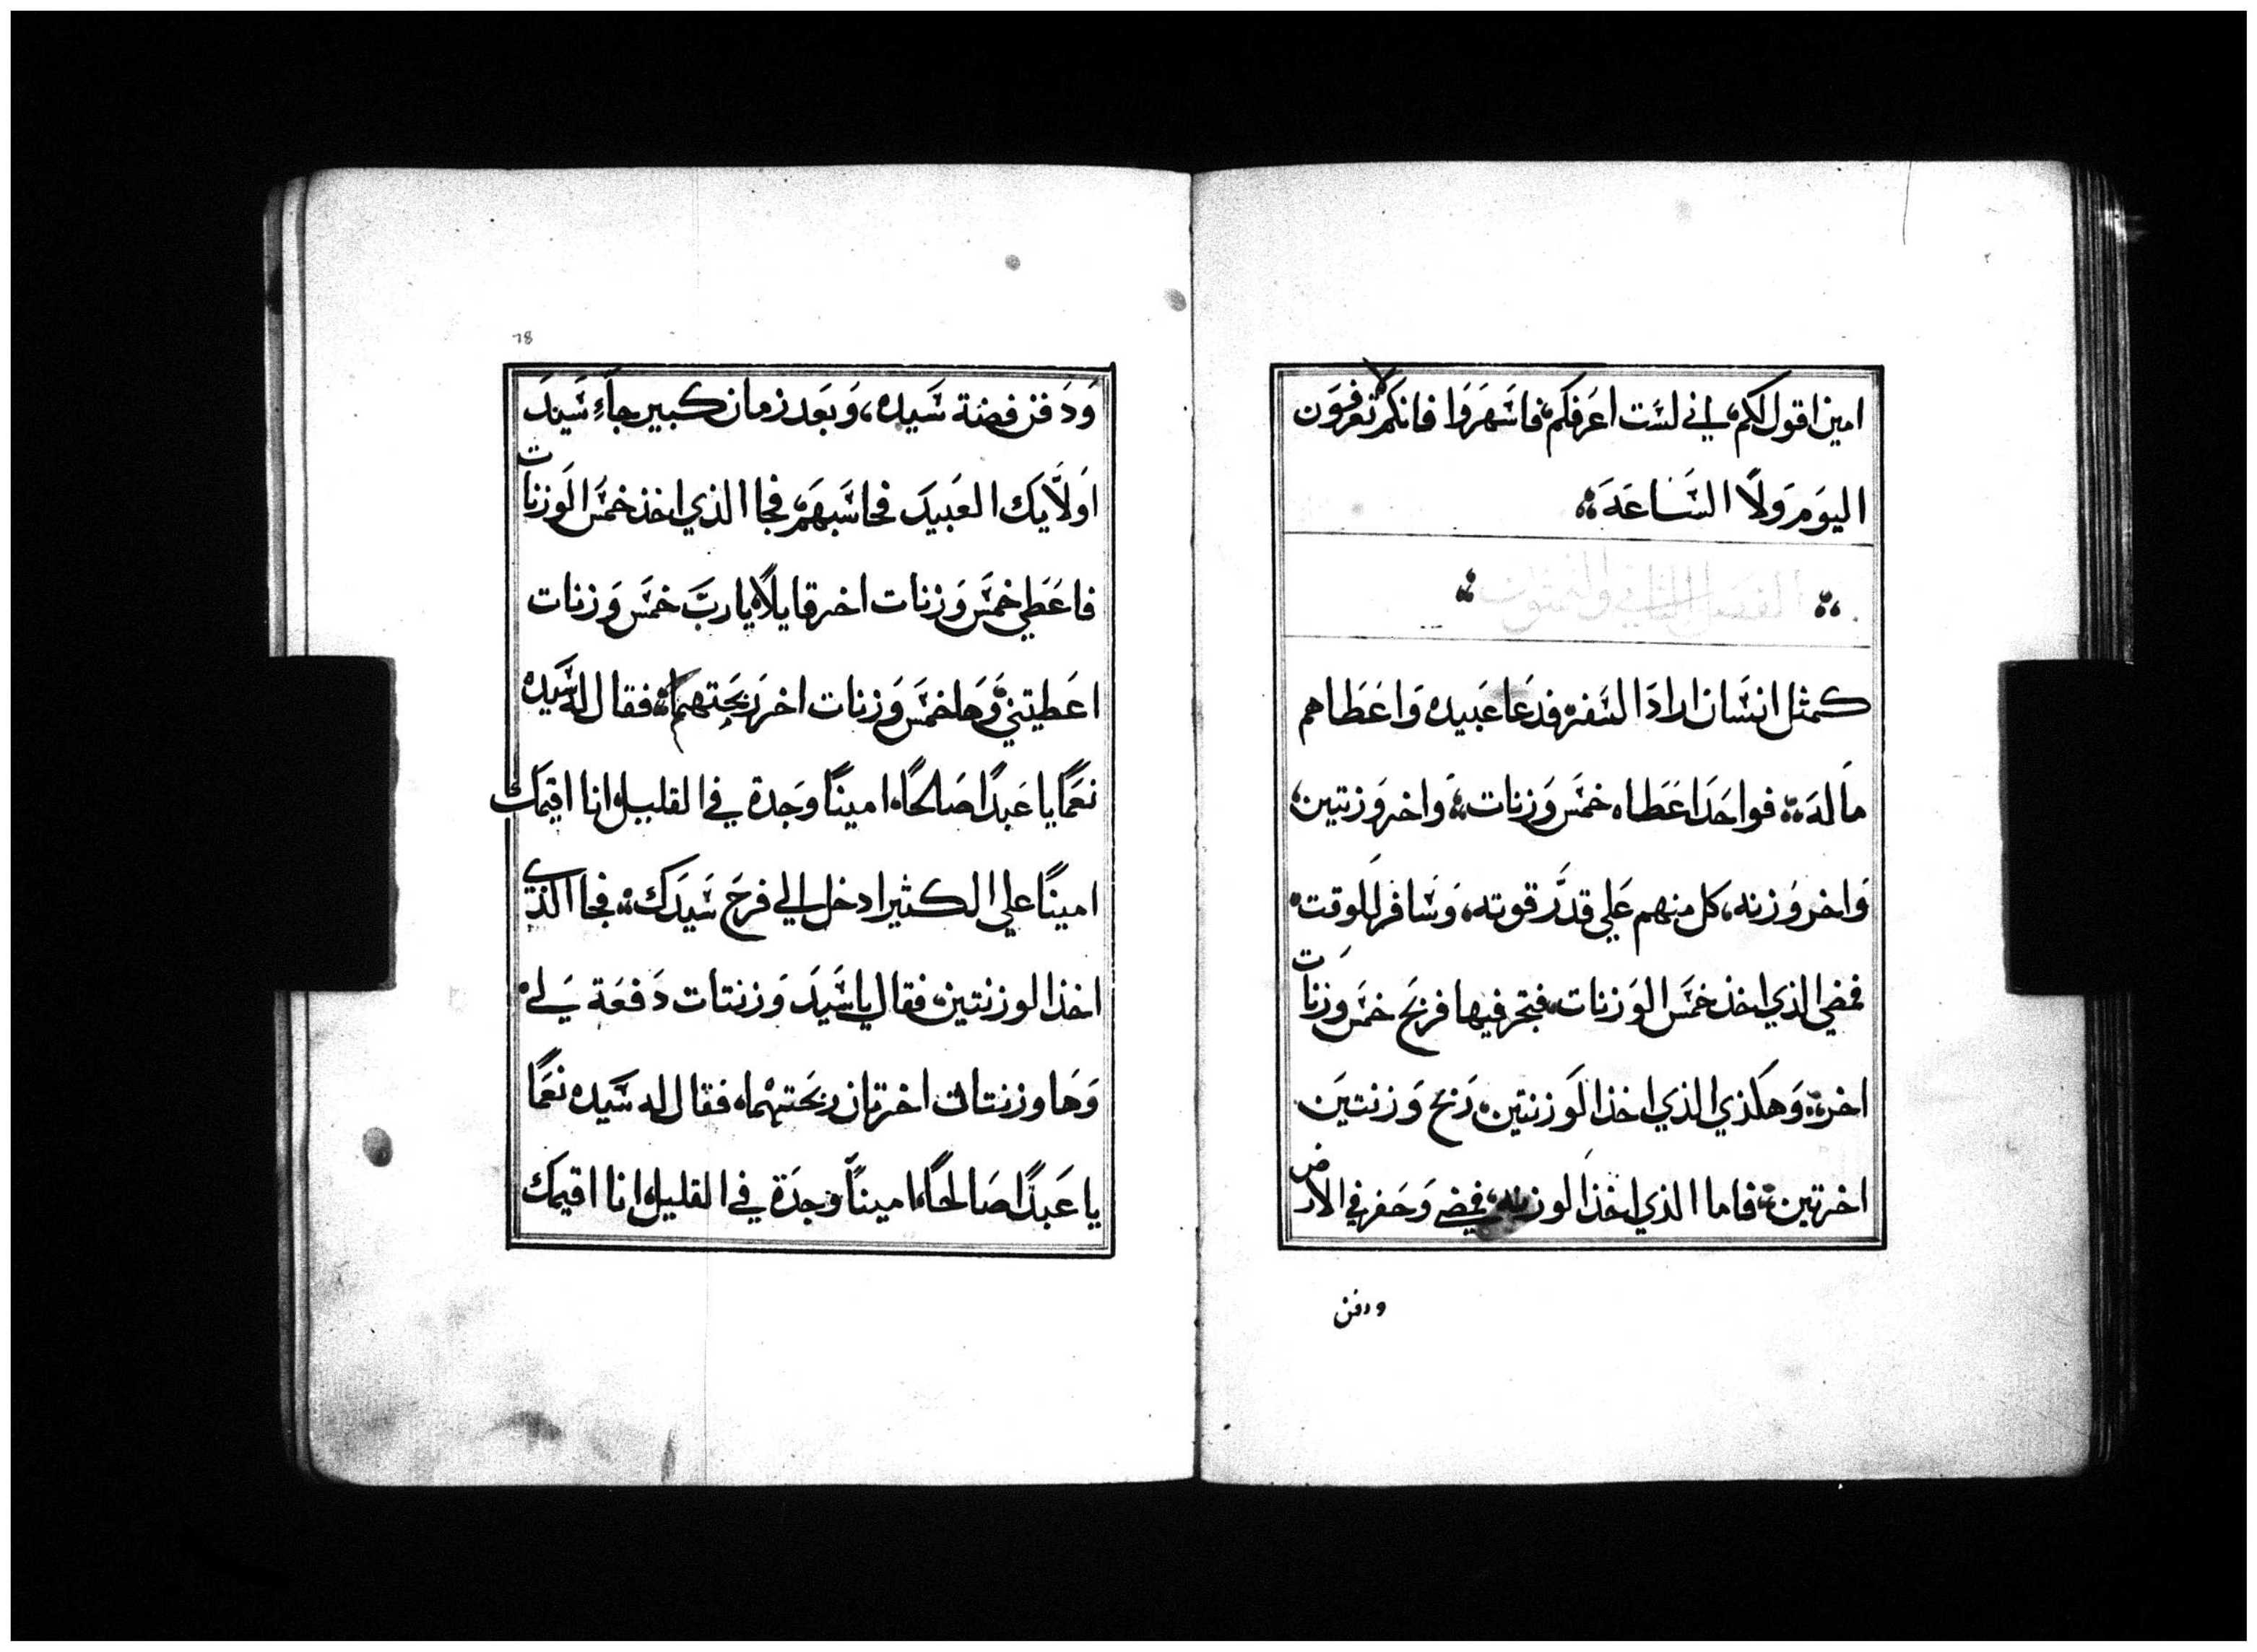 امين اقول لكم، اني لست اعرفكم، فاسهروا فانكم لا تعرفون
اليوم ولا الساعة
الفصل الثاني والثمنون
كمثل انسان اراد السفر، فدعا عبيده واعطاهم
ماله فواحدا عطاه خمس وزنات، واخر وزنتين،
واخر وزنه، كل منهم علي قدر قوته، وسافر للوقت
فمضي الذي اخذ خمس الوزنات، فتجر فيها فربح خمس وزنات
اخر، وهكذي الذي اخذ الوزنتين، ربح وزنتين
اخرتين، فاما الذي اخذ الوزنه، فمضي وحفر في الارض
ودفن
78
ودفن فضة سيده، وبعد زمان كبير جاء سيد
اولايك العبيد فحاسبهم، فجا الذي اخذ خمس الوزنات
فاعطي خمس وزنات اخر قايلا، يا رب خمس وزنات
اعطيتني، وها خمس وزنات اخر ربحتهم، فقال له سيده
نعما يا عبدا صالحا، امينا وجدة في القليل، انا اقيمك
امينا علي الكثير ادخل الي فرح سيدك، فجا الذي
اخذ الوزنتين، فقال يا سيد وزنتات دفعة لي
وها وزنتات اخرتان ربحتهما، فقال له سيده نعما
يا عبدا صالحا، امينا وجدة في القليل، انا اقيمك